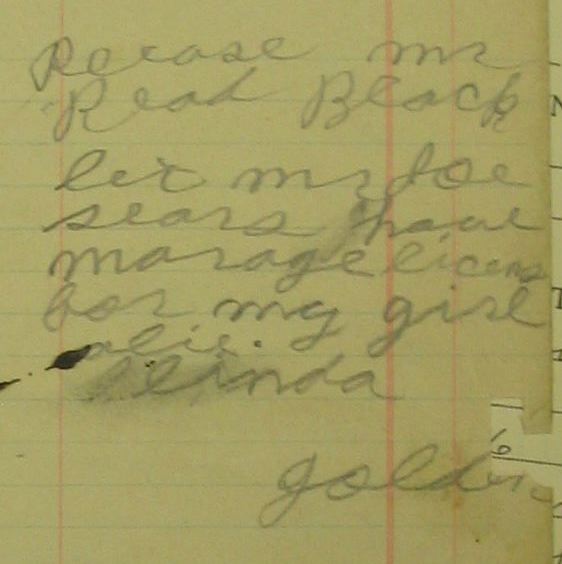 Pecase mr
Read Black
let mr Joe
sears have
marage licens
for my girl
alie.
Slinda
golden